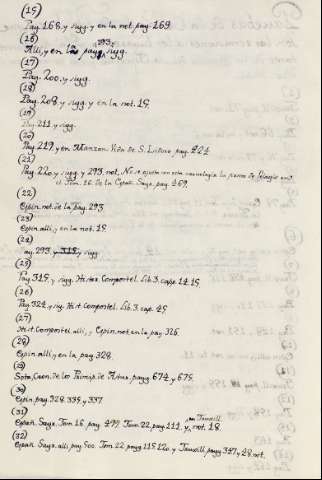 (15)
Pag. 168. y sigg. y en la not. pag. 169.
(16)
Alli, y en la pag. 293. y sigg.
(17)
Pag. 200. y sigg.
(18)
Pag. 208. y sigg. y en la not. 15.
(19)
Pag. 211. y sigg.
(20)
Pag. 219. y en Manzan. Vida de S. Isidoro pag. 221
(21)
Pag. 220. y sigg. y 293. not. No se ajusta con esta cronologia la
el Tom. 16. de la España Sagr. pag. 169.
(22)
Espin. not. de la pag. 293
(23)
Espin. alli, y en la not. 15.
(24)
Pag. 293. y 315. y sigg.
(25)
Pag. 315. y sigg. Histor. Compostel. Lib. 3. cap. 14. 15.
(26)
Pag. 324. y sig. Hist. Compostel. Lib. 3. cap. 45.
(27)
Hist. Compostel. alli, y Espin. not. en la pag. 326.
(28)
Espin. alli, y en la pag. 328.
(29)
Sota, Coron. de los Princip. de Astur. pagg. 674. y 675.
(30)
Espin. pag. 328. 335. y 337.
(31)
España Sagr. Tom. 16. pag. 499. Tom. 22. pag. 111. y en not. 18.
(32)
España Sagr. alli, pag. 500. Tom. 22. pagg. 115. 120. y pagg. 347. y 28. not.